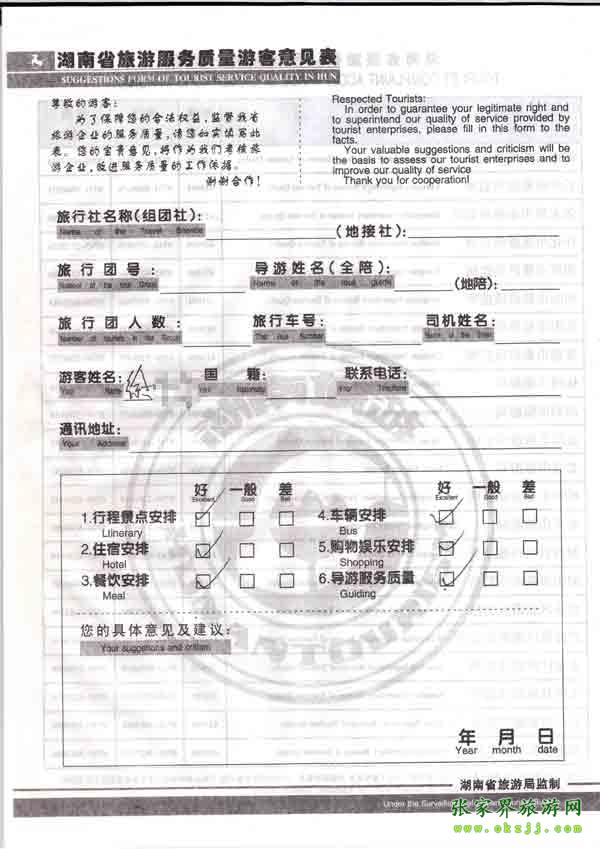 湖南省旅游服务质量游客意见表
SUGGESTIONS FORM OF TOURIST SERVICE QUALITY IN HUN
尊敬的游客：
为了保障您的合法权益，监督我省
旅游企业的服务质量，请您如实填写此
表。您的宝贵意见，将作为我们考核旅
游企业，改进服务质量的工作依据。
谢谢合作！
Respected Tourists:
In order to guarantee your legitimate right and
to superintend our quality of service provided by
tourist enterprises, please fill in this form to the
facts.
Your valuable suggestions and criticism will be
the basis to assess our tourist enterprises and to
improve our quality of service
Thank you for cooperation!
旅行社名称(组团社)： (地接社)：
Name of the Travel
旅行团号： 导游姓名(全陪)： (地陪)：
Number of the tour Group Name of the tour guide
旅行团人数： 旅行车号： 司机姓名：
Number of tourists in the Group The bus Number Name of the Driver
游客姓名： 国籍： 联系电话：
Your Name Your Nationality Your Telephone
通讯地址：
Your Address
好 一般 差 好 一般 差
Excellent Good Bad Excellent Good Bad
1.行程景点安排 4.车辆安排
Ltinerary Bus
2.住宿安排 5.购物娱乐安排
Hotel Shopping
3.餐饮安排 6.导游服务质量
Meal Guiding
您的具体意见及建议：
Your suggestions and critism
年 月 日
Year month date
湖南省旅游局监制
Under the Surveill
张家界旅游网
www.okzjj.com